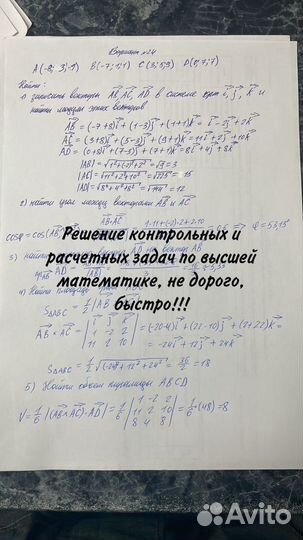 Вариант №24
A(-8; 3;-1) B(-7;1;1) C(3;5;9) D(0;7;7)
Найти:
1) записать векторы AB, AC, AD в системе орт i, j, k и
найти модули этих векторов
AB = (-7+8)i + (1-3)j + (1+1)k = i - 2j + 2k
AC = (3+8)i + (5-3)j + (9+1)k = 11i + 2j + 10k
AD = (0+8)i + (7-3)j + (7+1)k = 8i + 4j + 8k
|AB| = √1²+(-2)²+2² = √9 = 3
|AC| = √11²+2²+10² = √225 = 15
|AD| = √8²+4²+8² = √144 = 12
2) найти угол между векторами AB и AC
AB·AC 1·11+(-2)·2+2·10
cosφ = cos(AB φ = 53,13°
Решение контрольных и
расчетных задач по высшей
математике, не дорого,
быстро!!!
3)
4) Найти площадь
S△ABC = 1/2 |AB
AB × AC = | i j k | = (-20-4)i + (22-10)j + (2+22)k =
1 -2 2
11 2 10
= -24i + 12j + 24k
S△ABC = 1/2 √(-24)²+12²+24² = 36/2 = 18
5) Найти объем пирамиды ABCD
V = 1/6 |(AB×AC)·AD| = 1/6 | 1 -2 2 | = 1/6·(48) = 8
11 2 10
8 4 8
Avito